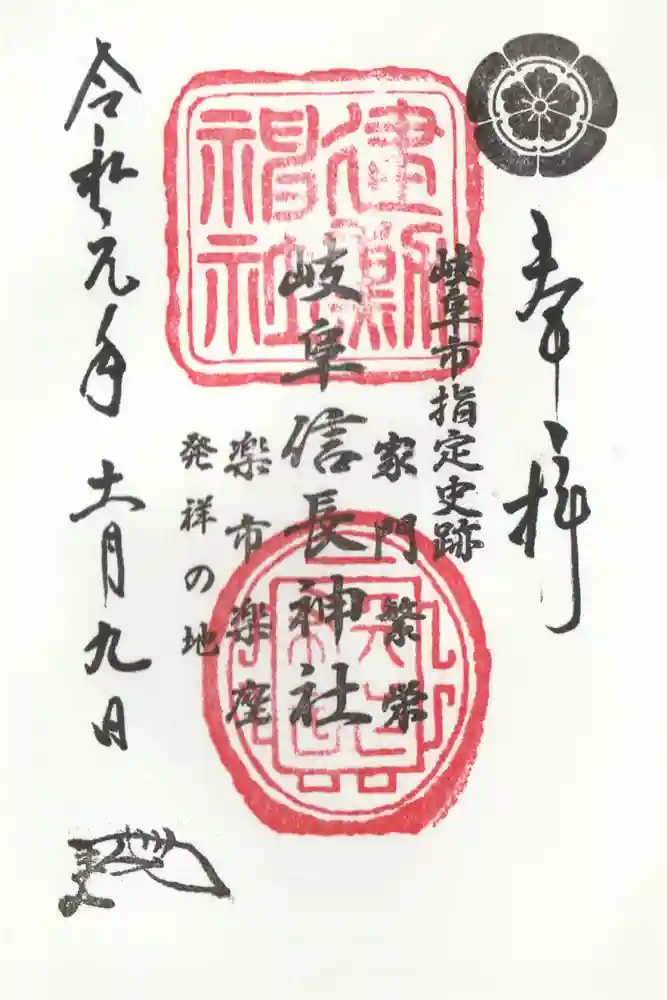 奉拝
岐阜市指定史跡
家門繁栄
岐阜信長神社
楽市楽座
発祥の地
令和元年十一月九日
建勲
神社